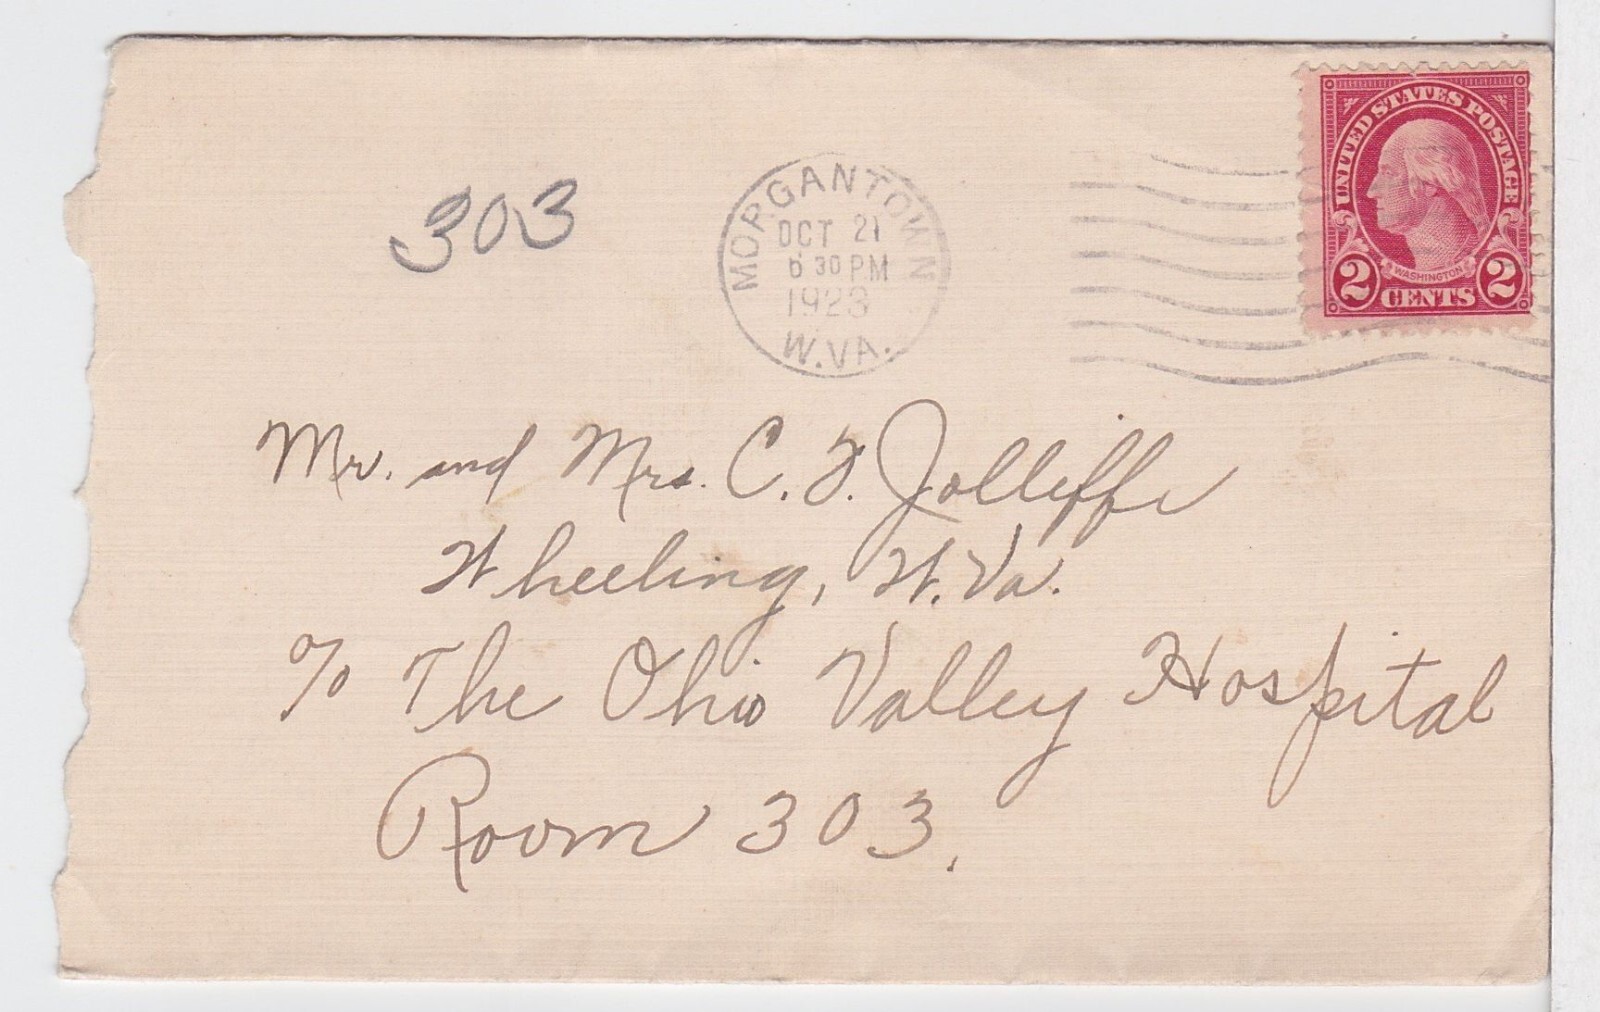 UNITED STATES POSTAGE
WASHINGTON
2 CENTS 2
303
MORGANTOWN
OCT 21
6 30 PM
1923
W.VA.
Mr. and Mrs. C. F. Jolliffe
Wheeling, W. Va.
c/o The Ohio Valley Hospital
Room 303.